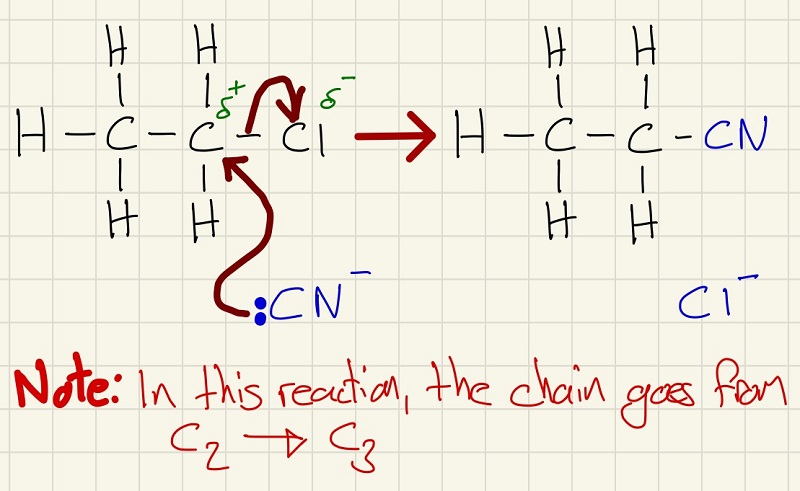 H H H H
δ+ δ-
H - C - C - Cl → H - C - C - CN
H H H H
:CN- Cl-
Note: In this reaction, the chain goes from
C2 → C3